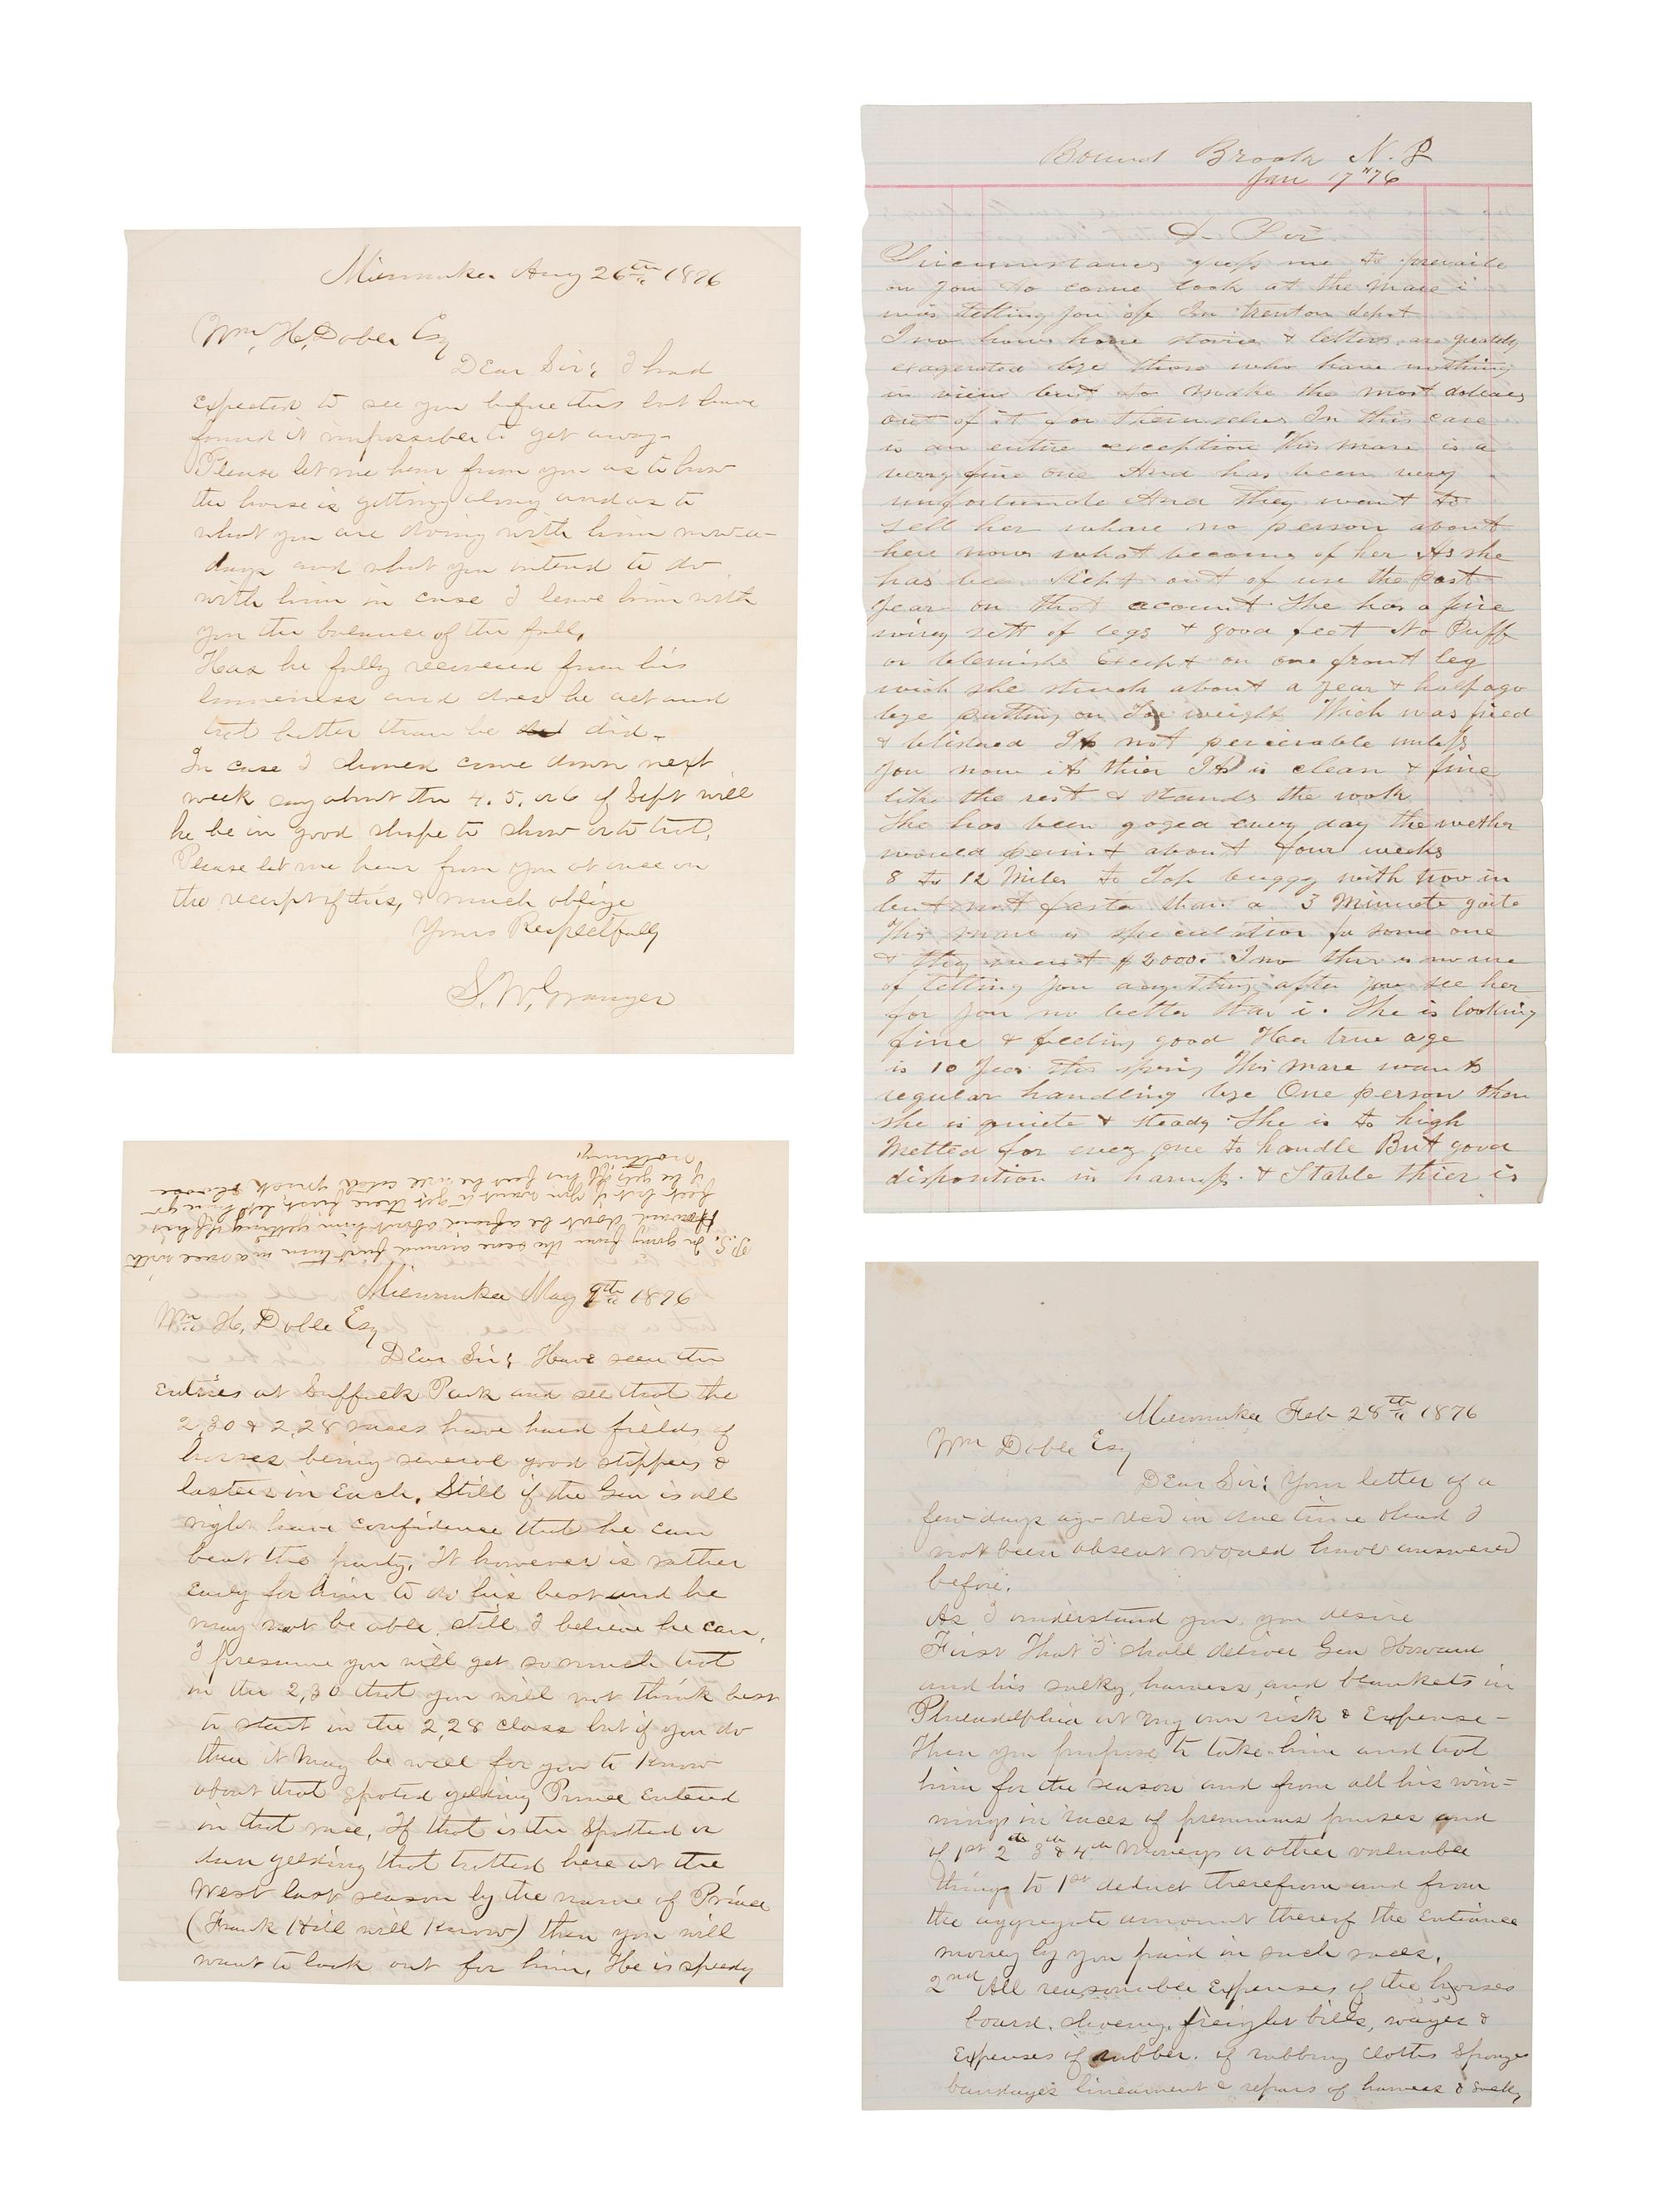 Milwaukee Aug 26th 1876
Wm. H. Doble Esq
Dear Sir; I had
Expected to see you before this but have
found it impossible to get away.
Please let me hear from you as to how
the horse is getting along and as to
what you are doing with him now-a-
days and what you intend to do
with him in case I leave him with
you the balance of the fall.
Has he fully recovered from his
lameness and does he act and
trot better than he did.
In case I should come down next
week say about the 4. 5. or 6 of Sept will
he be in good shape to show or to trot.
Please let me hear from you at once on
the receipt of this, & much oblige
Yours Respectfully
S. W. Granger
Bound Brook N. J
Jan 17th 76
D- Sir
Circumstances me to prevaile
on you to come look at the mare i
was telling you off In trenton depot
I no how horse storie & letters are greatly
exagerated bye those who have nothing
in view but to make the most dolears
out of it for themselves In this case
is an entire exception This mare is a
verry fine one And has been very
unfortunate And they want to
sell her whare no person about
here nows what becoms of her As she
has bee Kept out of use the past
year on that acount She has a fine
wirey sett of legs & good feet No Puff
or blemishe Except on one front leg
wich she struck about a year & half ago
bye putting on Toe weight Wich was fired
& blistered Its not perceivable unless
you now its thier Its is clean & fine
like the rest & stands the work
She has been goged every day the wether
would permit about four weeks
8 to 12 Miles to Top buggy with tow in
but not faster than a 3 Minuete gaite
This mare is speculation for some one
& they want $2000. I no ther is no use
of telling you anything after you see her
for you no better than i. She is looking
fine & feeling good Her true age
is 10 year this spring This mare wants
regular handling bye One person then
she is quiete & steady She is to high
Metled for evey one to handle But good
disposition in harness. & Stable thier is
P.S. In going from the score around first turn in a race with
Howard don't be afraid about him getting off his
feet but if you want to get there first, let him go
if he gets off his feet he will catch quick & loose
nothing.
Milwaukee May 9th 1876
Wm. H. Doble Esq
Dear Sir; Have seen the
Entries at Suffolk Park and see that the
2,30 & 2,28 races have hard fields of
horses being several good steppers &
lasters in Each. Still if the Gen is all
right have confidence that he can
beat the party. It however is rather
Early for him to do his best and he
may not be able still I believe he can.
I presume you will get so much trot
in the 2,30 that you will not think best
to start in the 2,28 class but if you do
then it May be well for you to Know
about that spoted gelding Prince Entered
in that race. If that is the Spotted or
dun gelding that trotted here at the
West last season by the name of Prince
(Frank Hill will Know) then you will
want to look out for him. He is speedy
Milwaukee Feb 28th 1876
Wm Doble Esq
Dear Sir; Your letter of a
few days ago recd in due time & had I
not been absent would have answered
before.
As I understand you, you desire
First That I shall deliver Gen Howard
and his sulky, harness, and blankets in
Philadelphia at my own risk & Expense-
Then you propose to take him and trot
him for the season and from all his win=
nings in races of premiums purses and
of 1st 2d 3d & 4th Moneys or other valuable
things to 1st deduct therefrom and from
the aggregate amount thereof the Entrance
money by you paid in such races.
2nd All reasonable Expenses of the horses
board. shoeing. freight bills, wages &
Expenses of rubber. of rubbing cloths Sponges
bandages lineament & repairs of harness & sulky